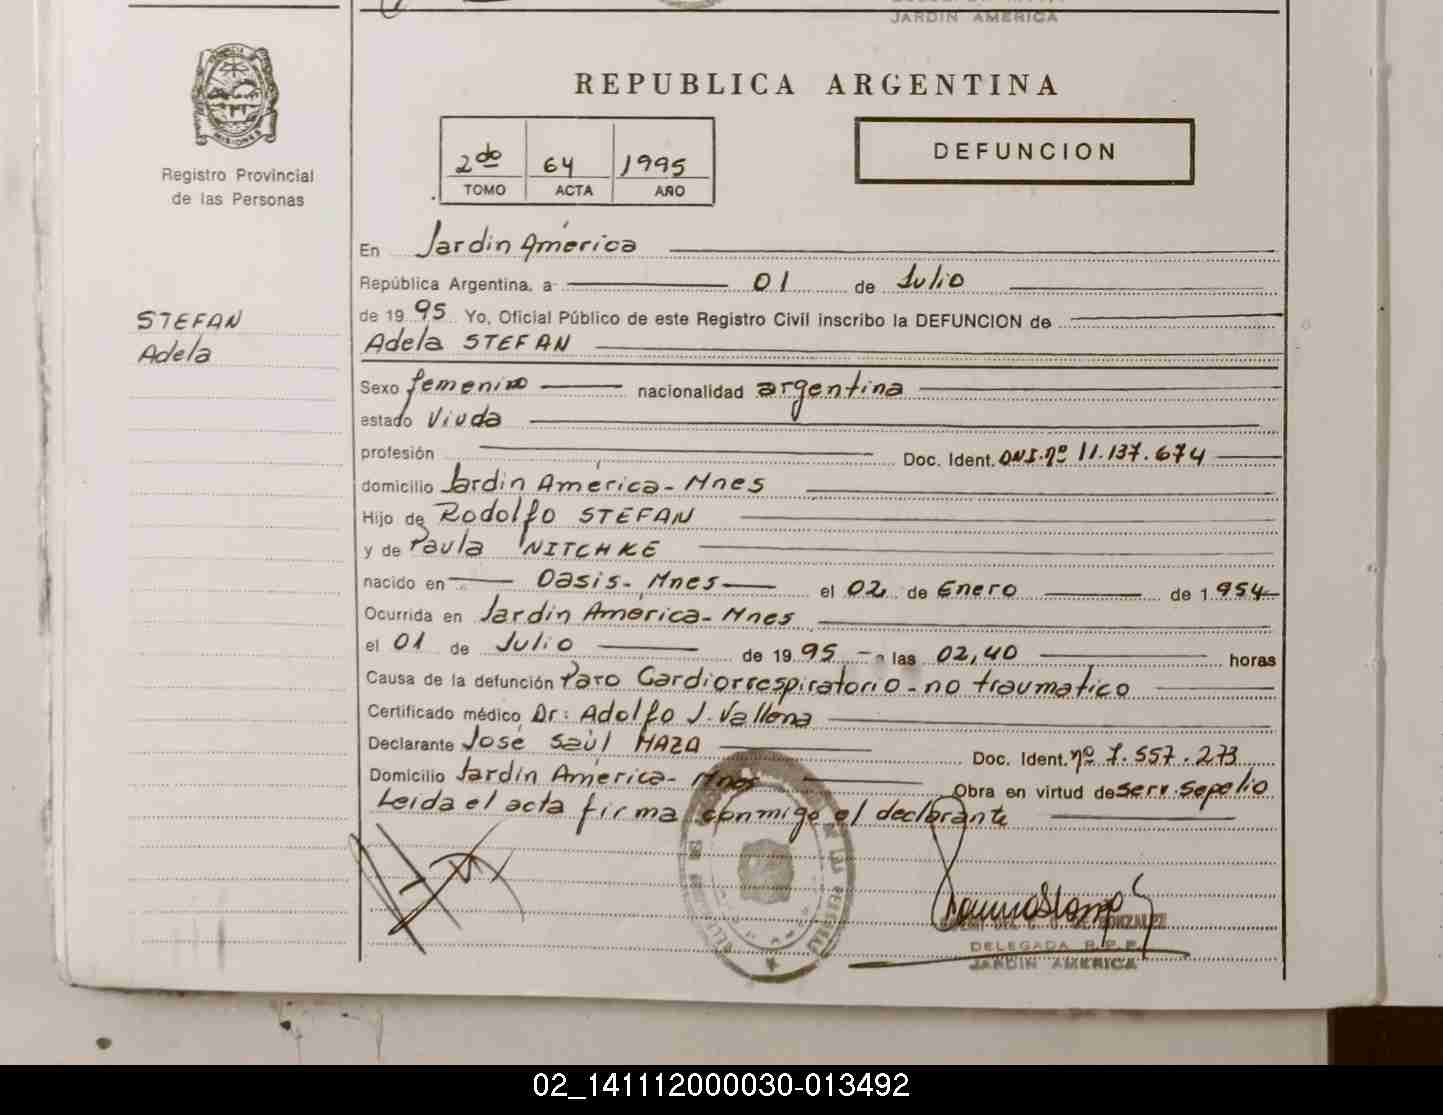 JARDIN AMERICA
MISIONES
Registro Provincial
de las Personas
STEFAN
Adela
REPUBLICA ARGENTINA
2do 64 1995
TOMO ACTA AÑO
DEFUNCION
En Jardín América
República Argentina, a 01 de Julio
de 1995 Yo, Oficial Público de este Registro Civil inscribo la DEFUNCION de
Adela STEFAN
Sexo femenino nacionalidad argentina
estado Viuda
profesión Doc. Ident. DNI. nº 11.137.674
domicilio Jardín América - Mnes
Hijo de Rodolfo STEFAN
y de Paula NITCHKE
nacido en Oasis - Mnes el 02 de Enero de 1.954
Ocurrida en Jardín América - Mnes
el 01 de Julio de 1995 a las 02,40 horas
Causa de la defunción Paro Cardiorrespiratorio - no traumatico
Certificado médico Dr: Adolfo J. Vallena
Declarante José Saúl MAZA Doc. Ident. nº 7.557.273
Domicilio Jardín América - Mnes Obra en virtud de serv. sepelio
Leida el acta firma conmigo el declarante
DE GONZALEZ
DELEGADA R.P.P.
JARDIN AMERICA
02_141112000030-013492